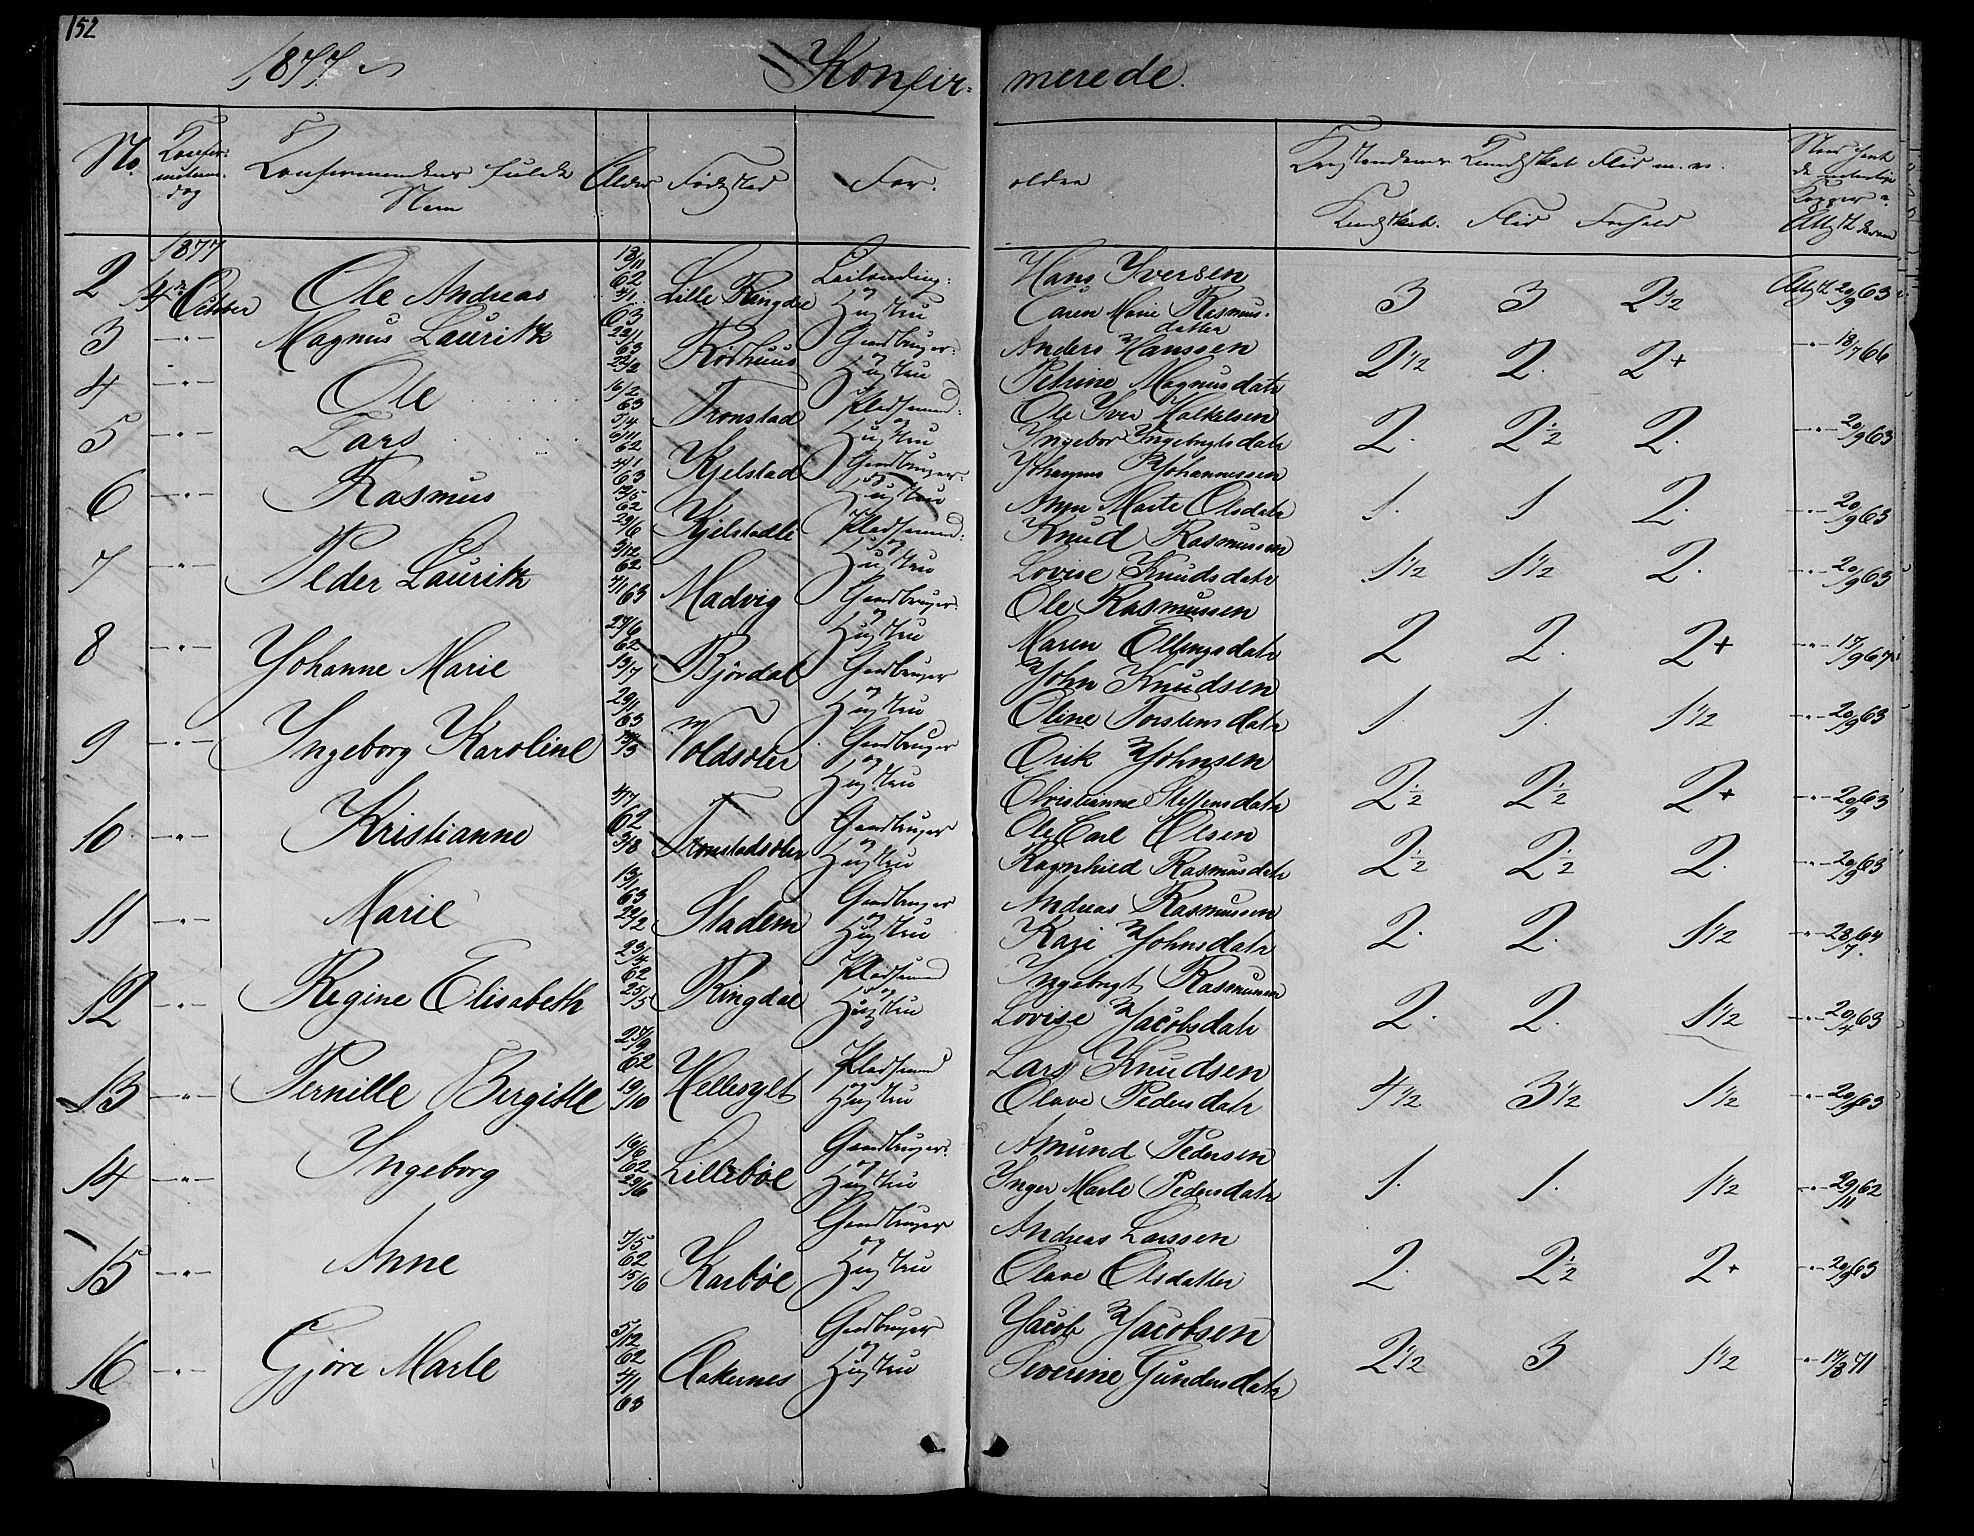 152
1877. Konfir= merede.
No. Konfir= mations dag Konfirmandens fulde Navn Alder Fødested For= ældre Kristendoms Kundskab Flid m. v. Kundskab. Flid Forhold
1877
2 14de Octber Ole Andreas 13/11 62 4/1 63 Lille Ringdal Leilending: og Hustru Hans Iversen Caren Marie Rasmus= datter 3 3 2 1/2 Attst 20/9 63
3 -"- Magnus Lauritz 22/1 63 22/2 Rødhuus Gaardbruger: og Hustru Anders Hanssen Petrine Magnusdatr 2 1/2 2. 2+ -"- 18/7 66
4 -"- Ole 16/2 63 5/4 Tronstad Pladsmand: og Hustru Ole Iver Ingebor Ingebrigtsdatr 2. 2 1/2 2. -"- 20/9 63
5 -"- Lars 6/11 62 4/1 63 Kjelstad Gaardbruger: og Hustru Johannes Johannessen Anne Marte Olsdatr 1. 1 2. -"- 20/9 63
6 -"- Rasmus 13/5 62 29/6 Kjelstadli Pladsmand: og Hustru Knud Rasmussen Lovise Knudsdatr 1 1/2 1 1/2 2. -"- 20/9 63
7 -"- Peder Lauritz 3/12 62 4/1 63 Madvig Gaardbruger: og Hustru Ole Rasmussen Maren Ellingsdatr 2 2. 2+ -"- 17/9 67
8 -"- Johanne Marie 24/6 62 13/7 Bjørdal Gaardbruger og Hustru John Knudsen Oline Torstensdatr 1. 1. 1 1/2 -"- 20/9 63
9 -"- Ingeborg Karoline 29/1 63 Voldsæter Gaardbruger og Hustru Erik Johnsen Christianne Steffensdatr 2 1/2 2 1/2 2+ -"- 20/9 63
10 -"- Kristianne 4/7 62 3/8 Tronstadsæter Gaardbruger og Hustru Ole Carl Olsen Ragnhild Rasmusdatr 2 1/2 2 1/2 2. -"- 20/9 63
11 -"- Marie 13/1 63 22/2 Stadem Gaardbruger og Hustru Andreas Rasmussen Kari Johnsdatr 2. 2. 1 1/2 -"- 28/7 64
12 -"- Regine Elisabeth 23/4 62 25/5 Ringdal Pladsmand og Hustru Ingebrigt Rasmussen Lovise Jacobsdatr 2. 2. 1 1/2 -"- 20/4 63
13 -"- Pernille Bergitte 27/9 62 19/10 Hellesylt Pladsmand og Hustru Lars Knudsen Olave Pedersdatr 4 1/2 3 1/2 1 1/2 -"- 20/9 63
14 -"- Ingeborg 16/6 62 29/6 Lillebøe Gaardbruger: og Hustru Amund Pedersen Inger Marte Pedersdatr 1. 1. 1 1/2 -"- 29/11 62
15 -"- Anne 7/5 62 15/6 Karbøe Gaardbruger og Hustru Andreas Larssen Olave Olsdatter 2. 2 1/2 2+ -"- 20/9 63
16 -"- Gjøre Marte 5/12 62 4/1 63 Aakernes Gaardbruger og Hustru Jacob Jacobsen Severine Gundersdatr 2 1/2 3 1 1/2 -"- 17/8 71